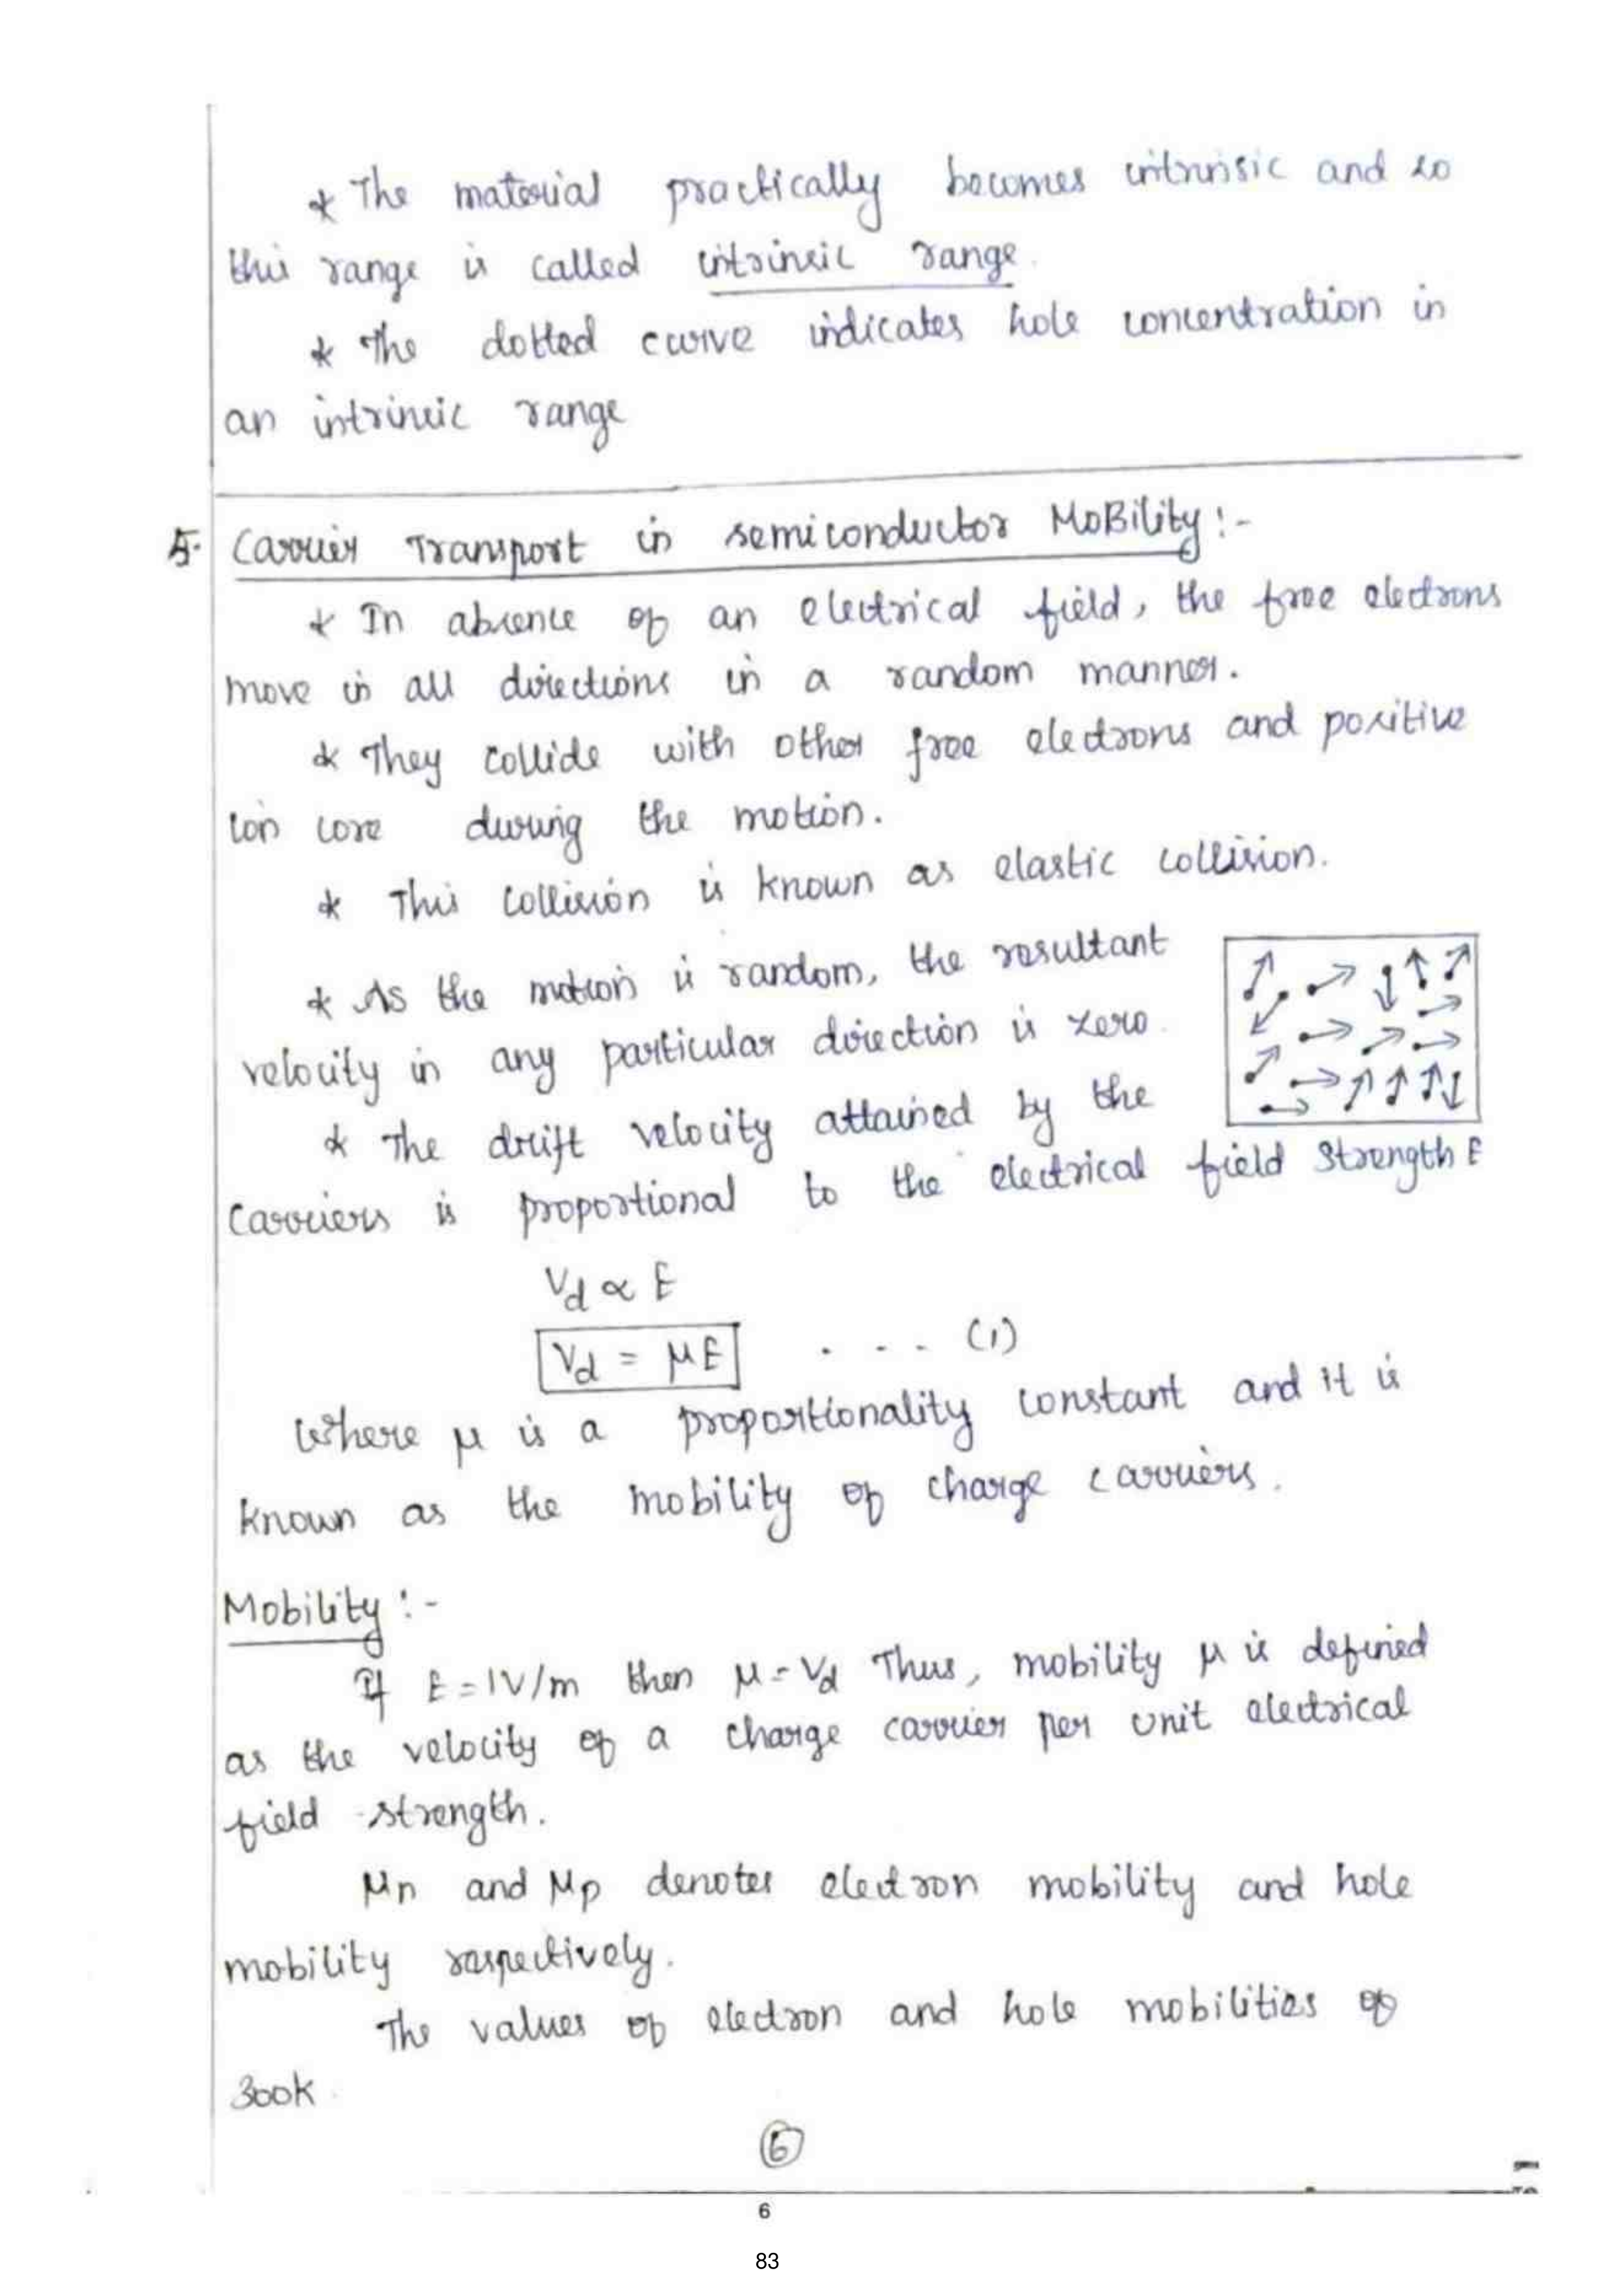 * The material practically becomes intrinsic and so
this range is called intrinsic range.
* The dotted curve indicates hole concentration in
an intrinsic range
5. Carrier Transport in semiconductor MoBility :-
* In absence of an electrical field, the free electrons
move in all directions in a random manner.
* They collide with other free electrons and positive
ion core during the motion.
* This collision is known as elastic collision.
* As the motion is random, the resultant
velocity in any particular direction is zero.
* The drift velocity attained by the
carriers is proportional to the electrical field strength E
Vd ∝ E
Vd = μE . - - - (1)
Where μ is a proportionality constant and it is
known as the mobility of charge carriers.
Mobility :-
If E = 1V/m then μ = Vd Thus, mobility μ is defined
as the velocity of a charge carrier per unit electrical
field strength.
μn and μp denotes electron mobility and hole
mobility respectively.
The values of electron and hole mobilities of
300K.
6
6
83